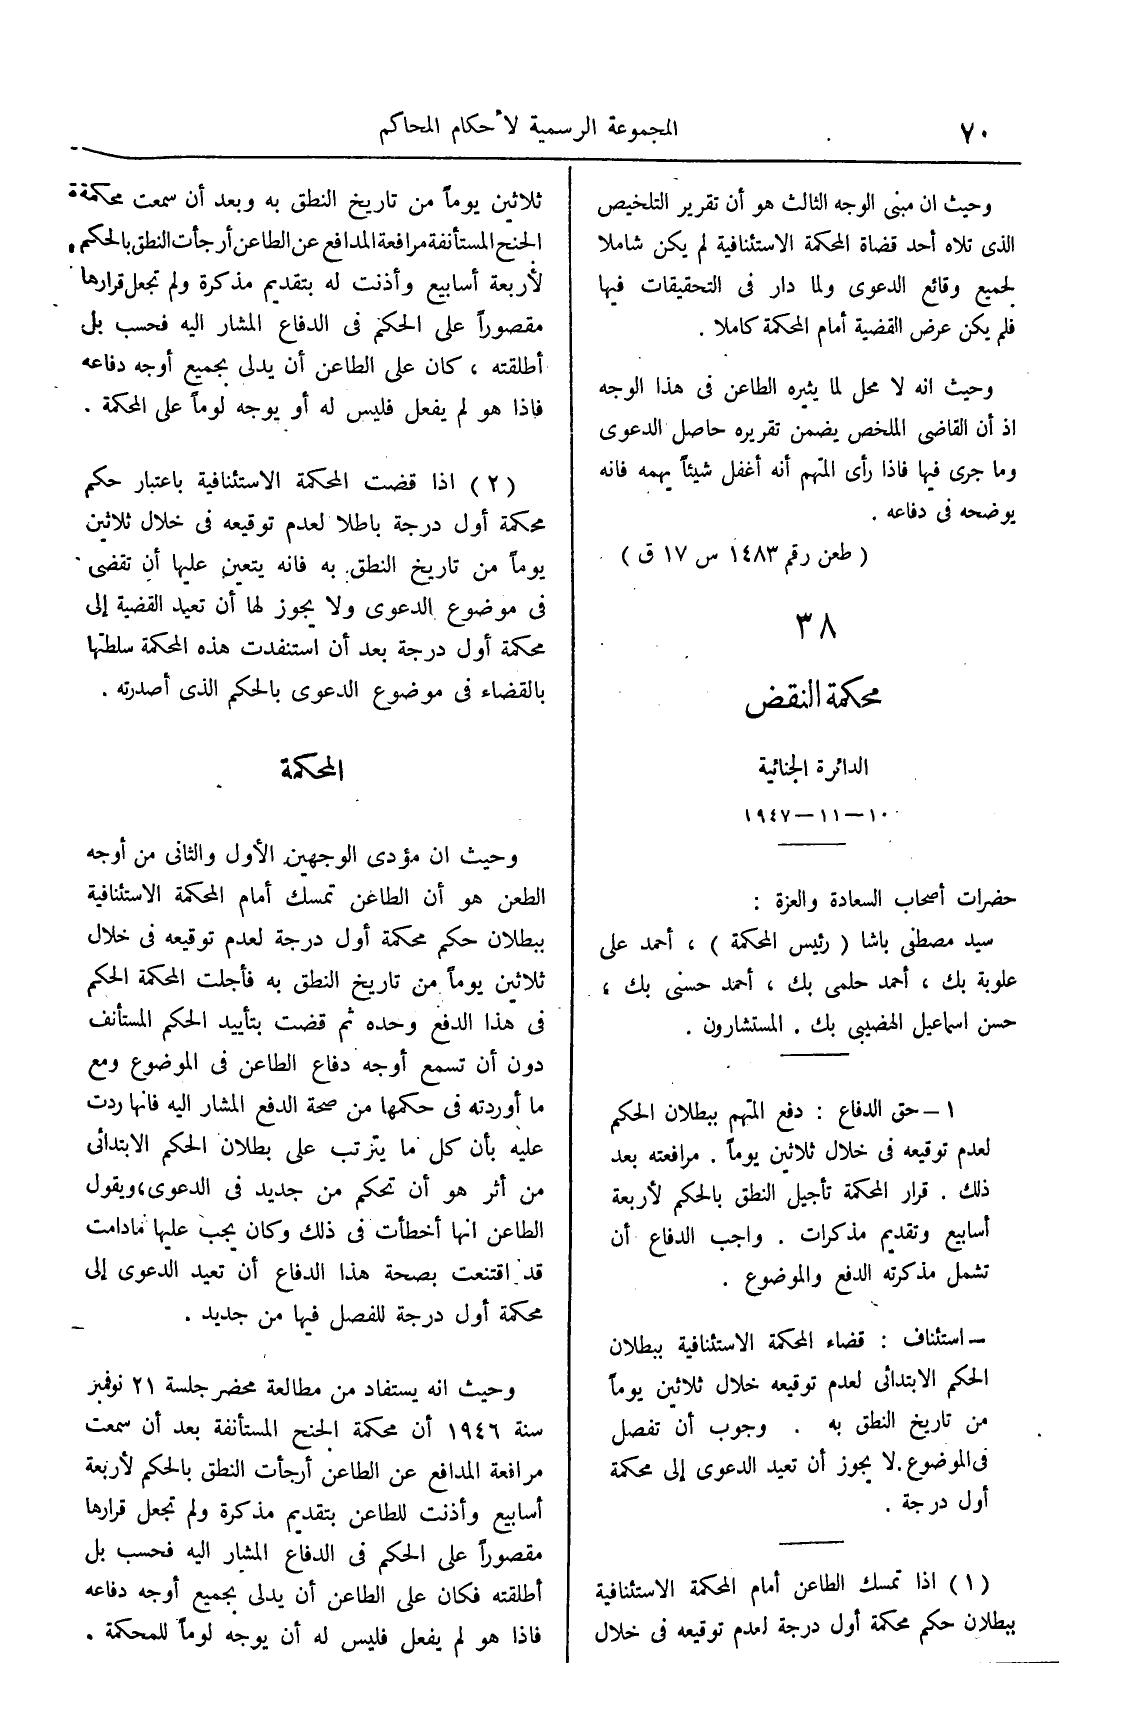 ٧٠
المجموعة الرسمية لأحكام المحاكم
وحيث ان مبنى الوجه الثالث هو أن تقرير التلخيص
الذى تلاه أحد قضاة المحكمة الاستئنافية لم يكن شاملا
لجميع وقائع الدعوى ولما دار فى التحقيقات فيها
فلم يكن عرض القضية أمام المحكمة كاملا .
وحيث انه لا محل لما يثيره الطاعن فى هذا الوجه
اذ أن القاضى الملخص يضمن تقريره حاصل الدعوى
وما جرى فيها فاذا رأى المتهم أنه أغفل شيئاً يهمه فانه
يوضحه فى دفاعه .
( طعن رقم ١٤٨٣ س ١٧ ق )
٣٨
محكمة النقض
الدائرة الجنائية
١٠–١١–١٩٤٧
حضرات أصحاب السعادة والعزة :
سيد مصطفى باشا ( رئيس المحكمة ) ، أحمد على
علوبة بك ، أحمد حلمى بك ، أحمد حسنى بك ،
حسن اسماعيل الهضيبى بك . المستشارون .
١ – حق الدفاع : دفع المتهم ببطلان الحكم
لعدم توقيعه فى خلال ثلاثين يوماً . مرافعته بعد
ذلك . قرار المحكمة تأجيل النطق بالحكم لأربعة
أسابيع وتقديم مذكرات . واجب الدفاع أن
تشمل مذكرته الدفع والموضوع .
– استئناف : قضاء المحكمة الاستئنافية ببطلان
الحكم الابتدائى لعدم توقيعه خلال ثلاثين يوماً
من تاريخ النطق به . وجوب أن تفصل
فى الموضوع . لا يجوز أن تعيد الدعوى إلى محكمة
أول درجة .
(١) اذا تمسك الطاعن أمام المحكمة الاستئنافية
ببطلان حكم محكمة أول درجة لعدم توقيعه فى خلال
ثلاثين يوماً من تاريخ النطق به وبعد أن سمعت محكمة
الجنح المستأنفة مرافعة المدافع عن الطاعن أرجأت النطق بالحكم
لأربعة أسابيع وأذنت له بتقديم مذكرة ولم تجعل قرارها
مقصوراً على الحكم فى الدفاع المشار اليه فحسب بل
أطلقته ، كان على الطاعن أن يدلى بجميع أوجه دفاعه
فاذا هو لم يفعل فليس له أو يوجه لوماً على المحكمة .
(٢) اذا قضت المحكمة الاستئنافية باعتبار حكم
محكمة أول درجة باطلا لعدم توقيعه فى خلال ثلاثين
يوماً من تاريخ النطق به فانه يتعين عليها أن تقضى
فى موضوع الدعوى ولا يجوز لها أن تعيد القضية إلى
محكمة أول درجة بعد أن استنفدت هذه المحكمة سلطتها
بالقضاء فى موضوع الدعوى بالحكم الذى أصدرته .
المحكمة
وحيث ان مؤدى الوجهين الأول والثانى من أوجه
الطعن هو أن الطاعن تمسك أمام المحكمة الاستئنافية
ببطلان حكم محكمة أول درجة لعدم توقيعه فى خلال
ثلاثين يوماً من تاريخ النطق به فأجلت المحكمة الحكم
فى هذا الدفع وحده ثم قضت بتأييد الحكم المستأنف
دون أن تسمع أوجه دفاع الطاعن فى الموضوع ومع
ما أوردته فى حكمها من صحة الدفع المشار اليه فانها ردت
عليه بأن كل ما يترتب على بطلان الحكم الابتدائى
من أثر هو أن تحكم من جديد فى الدعوى، ويقول
الطاعن انها أخطأت فى ذلك وكان يجب عليها مادامت
قد اقتنعت بصحة هذا الدفاع أن تعيد الدعوى إلى
محكمة أول درجة للفصل فيها من جديد .
وحيث انه يستفاد من مطالعة محضر جلسة ٢١ نوفمبر
سنة ١٩٤٦ أن محكمة الجنح المستأنفة بعد أن سمعت
مرافعة المدافع عن الطاعن أرجأت النطق بالحكم لأربعة
أسابيع وأذنت للطاعن بتقديم مذكرة ولم تجعل قرارها
مقصوراً على الحكم فى الدفاع المشار اليه فحسب بل
أطلقته فكان على الطاعن أن يدلى بجميع أوجه دفاعه
فاذا هو لم يفعل فليس له أن يوجه لوماً للمحكمة .